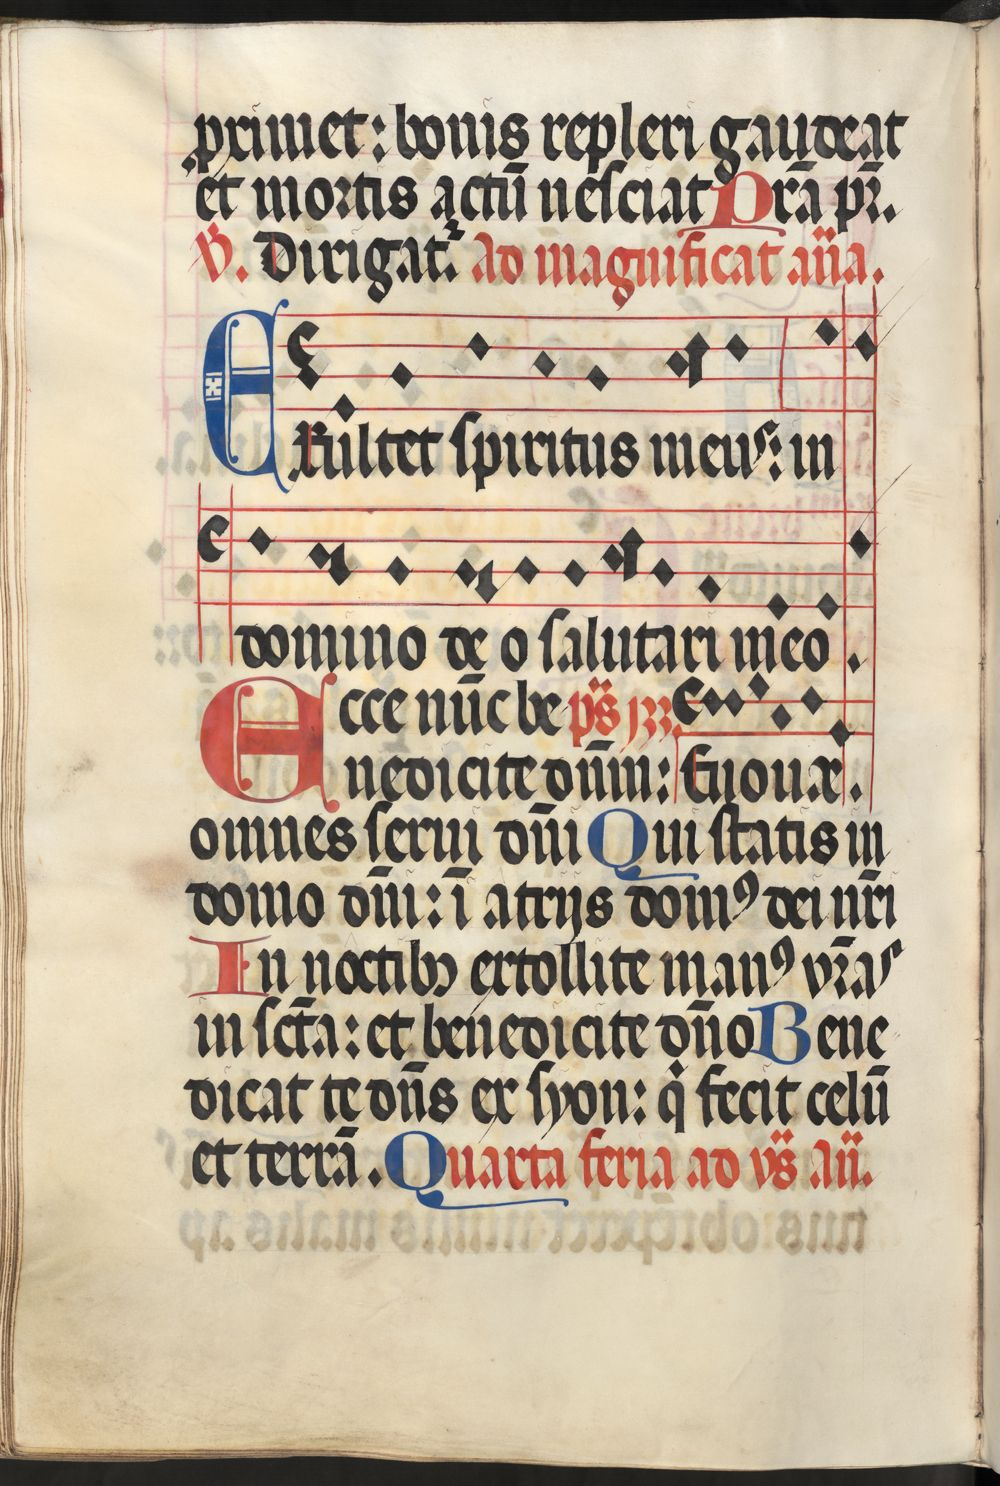 primet: bonis repleri gaudeat
et mortis actū nesciat Prā pr̄.
V̄. Dirigat᷑. Ad magnificat an̄a.
Exultet spiritus meus: in
domino deo salutari meo.
Ecce nūc be ps̄ 133.
nedicite dn̄m: Euouae.
omnes serui dn̄i Qui statis in
domo dn̄i: ī atrijs domꝰ dei nr̄i
In noctibꝫ extollite manꝰ vr̄as
in sc̄ta: et benedicite dn̄o Bene
dicat te dn̄s ex syon: q̇ fecit celū
et terrā. Quarta feria ad vs̄ an̄.